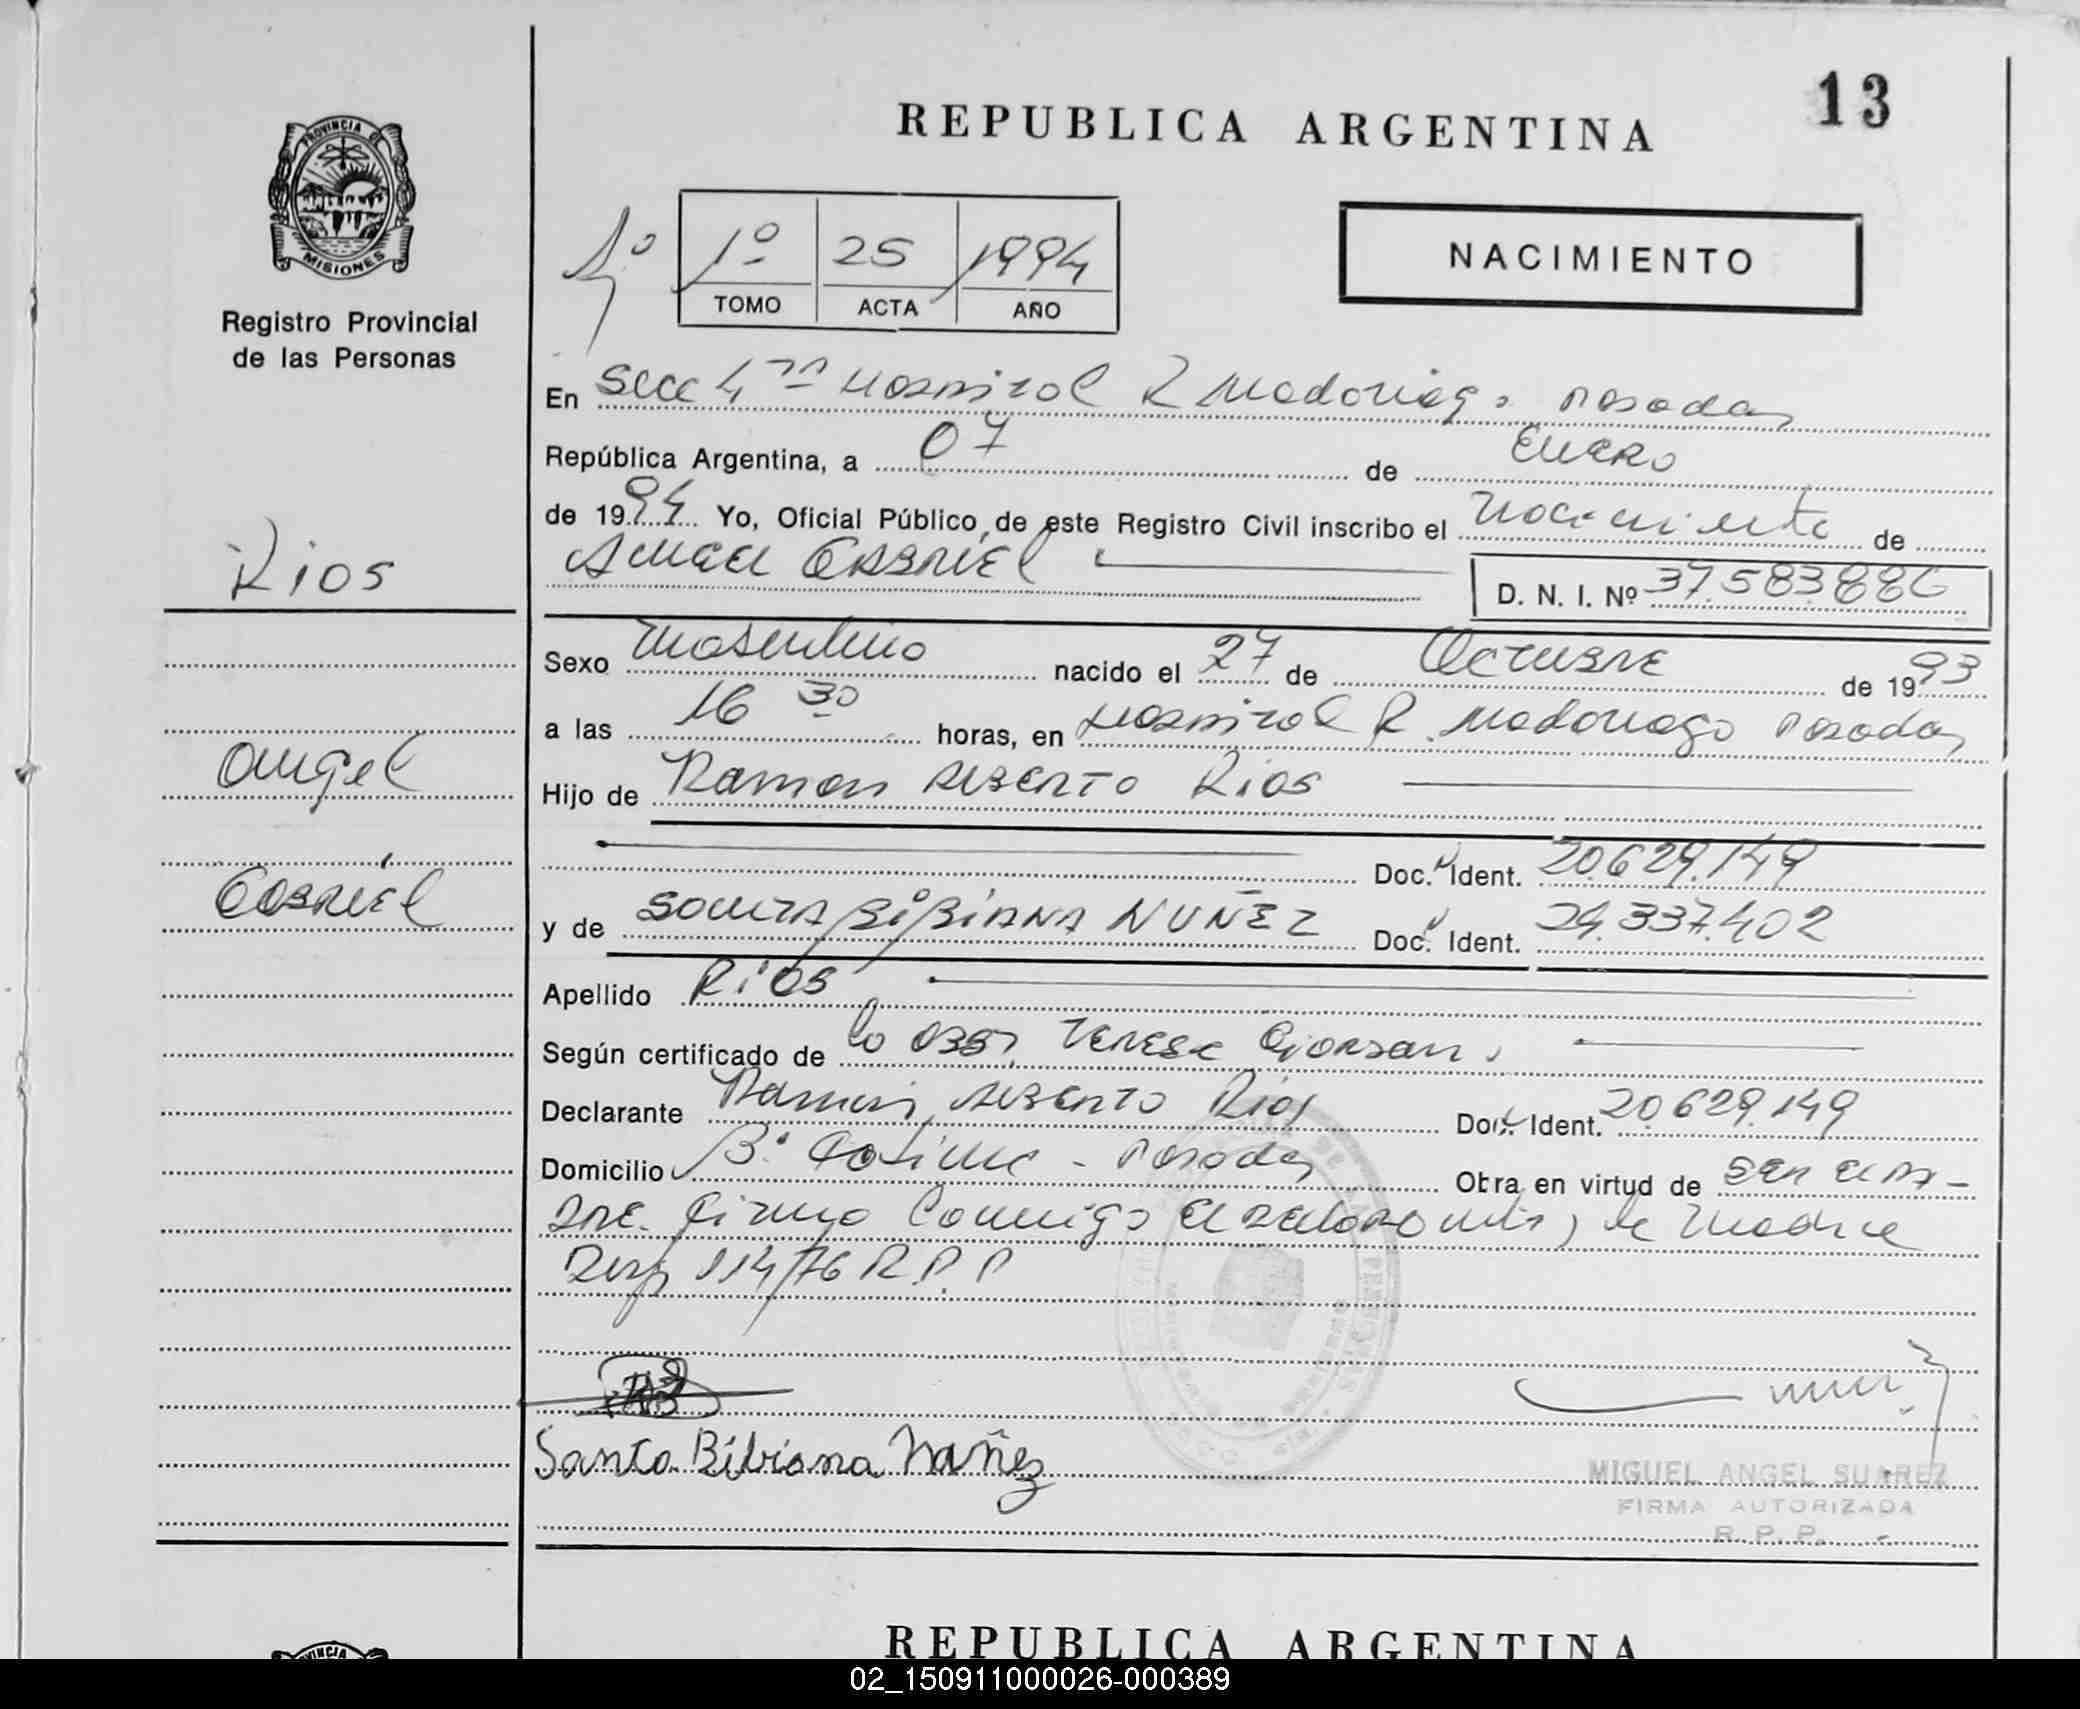 REPUBLICA ARGENTINA
13
PROVINCIA DE
MISIONES
Registro Provincial
de las Personas
1º 25 1994
TOMO ACTA AÑO
NACIMIENTO
En Secc 4 Hospital R Madariaga Posadas
República Argentina, a 07 de Enero
de 1994 Yo, Oficial Público de este Registro Civil inscribo el Nacimiento de
Angel Gabriel D. N. I. Nº 37.583.886
Rios
Sexo Masculino nacido el 27 de Octubre de 1993
a las 16 30 horas, en Hospital R. Madariaga Posadas
Angel
Hijo de Ramon Alberto Rios
Doc. Ident. 20.629.149
Gabriel
y de Bibiana NUÑEZ Doc. Ident. 24.337.402
Apellido Rios
Según certificado de la Obst. Teresa
Declarante Ramon Alberto Rios Doc. Ident. 20.629.149
Domicilio Bº Posadas Obra en virtud de ser el pa-
dre. Firma Conmigo la Madre
Disp 114/76 R.P.P
Santa Bibiana Nuñez
MIGUEL ANGEL SUAREZ
FIRMA AUTORIZADA
R. P. P.
REPUBLICA ARGENTINA
02_150911000026-000389